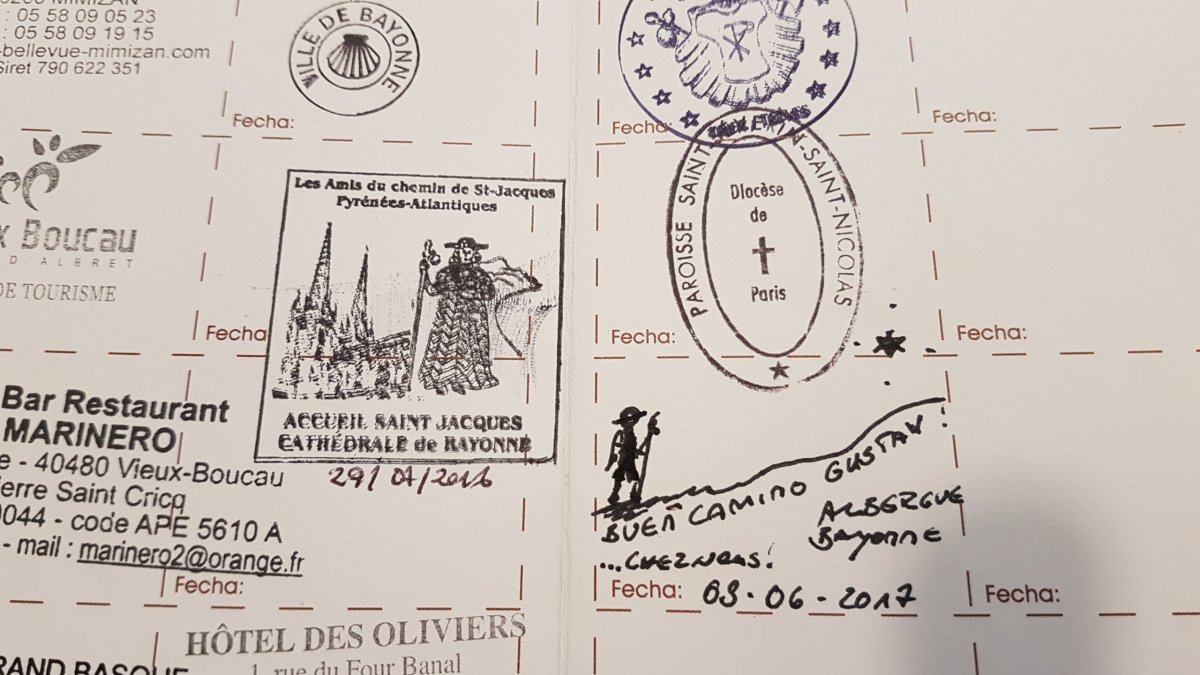 : 05 58 09 05 23
: 05 58 09 19 15
-bellevue-mimizan.com
Siret 790 622 351
VILLE DE BAYONNE
Fecha:
Fecha:
Fecha:
x Boucau
D'ALBRET
DE TOURISME
Fecha
Les Amis du chemin de St-Jacques
Pyrénées-Atlantiques
ACCUEIL SAINT JACQUES
CATHÉDRALE de BAYONNE
29/07/2016
PAROISSE SAINT
N-SAINT-NICOLAS
Diocèse
de
Paris
Fecha:
Fecha:
Bar Restaurant
MARINERO
e - 40480 Vieux-Boucau
ierre Saint Cricq
0044 - code APE 5610 A
- mail : marinero2@orange.fr
Fecha:
BUEN CAMINO GUSTAV!
ALBERGUE
Bayonne
...CHEZ NOUS!
Fecha: 03-06-2017
Fecha:
HÔTEL DES OLIVIERS
1, rue du Four Banal
RAND BASQUE